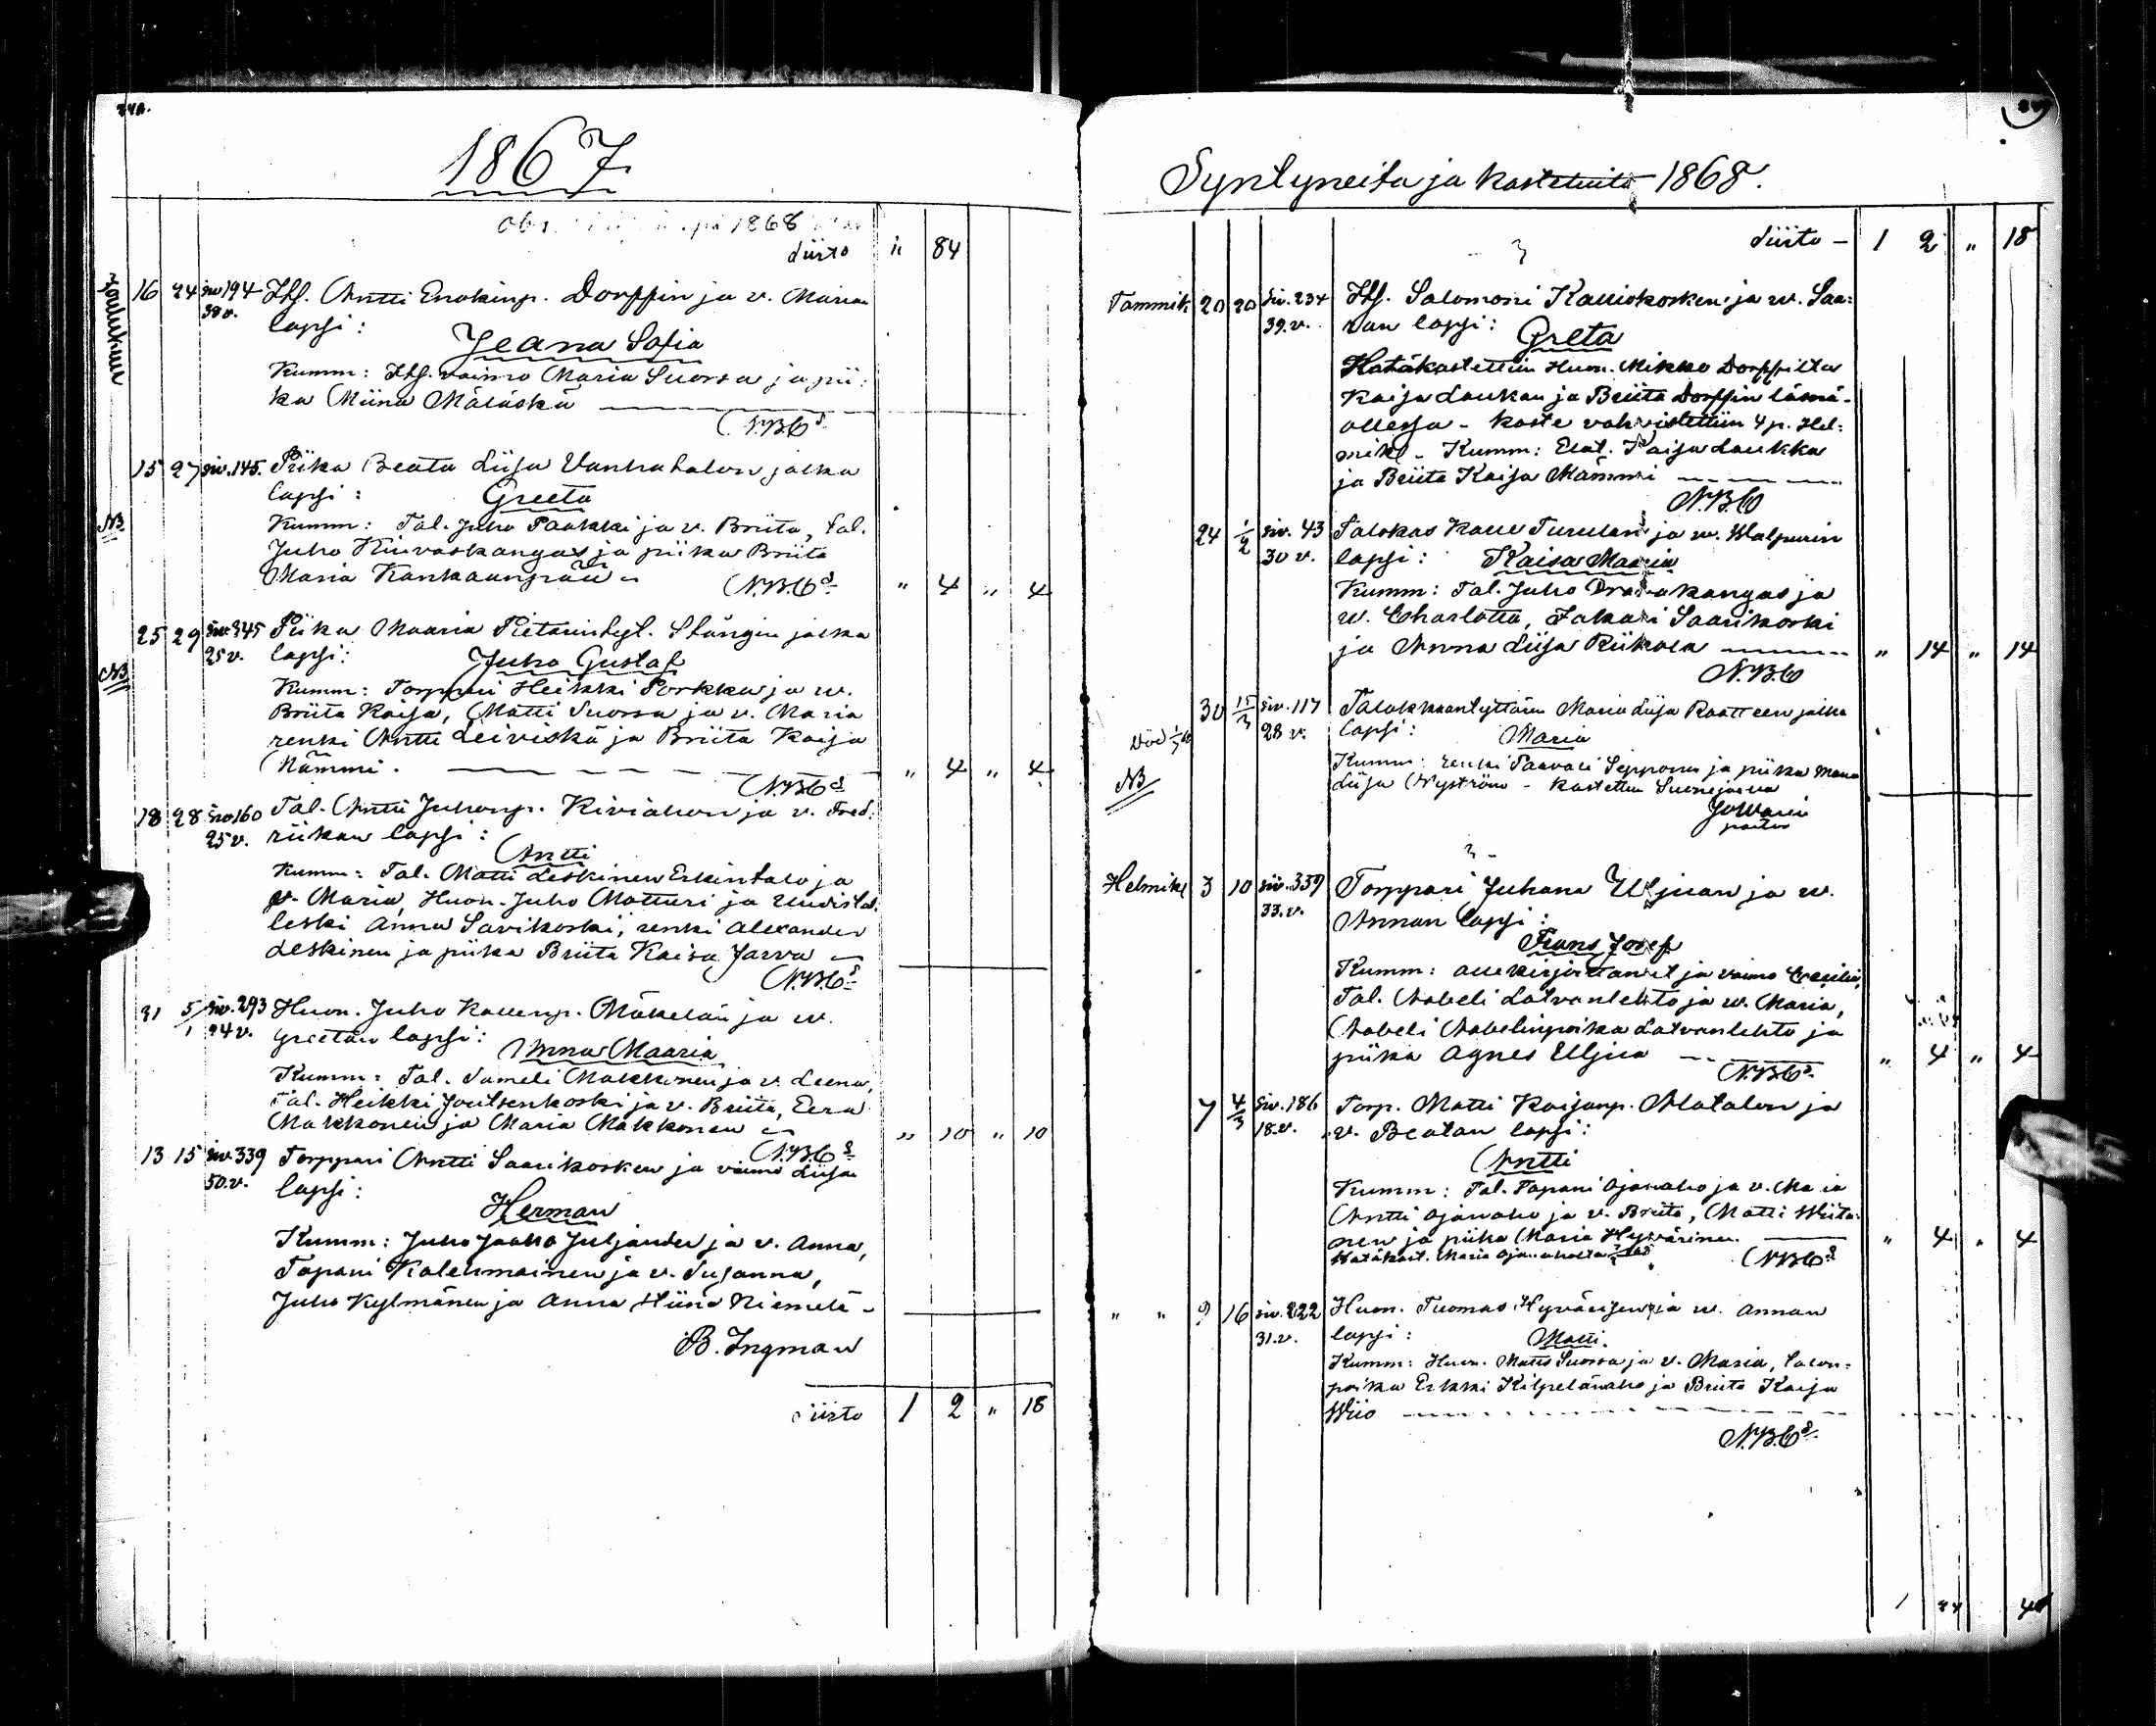 1867
1868
siirto " 84
Joulukuu
16 24 siv 194 Itls. Antti Enokinp. Dorffin ja v. Marian
38 v. lapsi:
Jeana Sofia
Kumm: Itls. vaimo Maria Suorsa ja pii-
ka Miina Mäläskä
N.B.C
15 27 siv. 145. Piika Beata Liisa Vanhatalon jalka
lapsi:
Greeta
NB
Kumm: Tal. Juho Paakki ja v. Briita, tal.
Juho Kiivaskangas ja piika Briita
Maria Kankaanpää
N.B.C " 4 " 4
25 29 siv. 345 Piika Maaria Pietarintyt. Stångin jalka
25 v. lapsi:
Juho Gustaf
NB
Kumm: Torppari Heikki Porkka ja w.
Briita Kaisa, Matti Suorsa ja v. Maria
renki Antti Leiviskä ja Briita Kaisa
Nämmi. " 4 " 4
N.B.C
18 28 siv 160 Tal. Antti Juhonp. Kiviahon ja v. Fred-
25 v. riikan lapsi:
Antti
Kumm: Tal. Matti Leskinen Erkintalo ja
v. Maria, Huon. Juho Matturi ja Uudistal.
leski Anna Savikoski, renki Alexander
Leskinen ja piika Briita Kaisa Jarva
N.B.C
31 5/1 siv. 293 Huon. Juho Kallenp. Mäkelän ja w.
24 v. Greetan lapsi:
Anna Maaria
Kumm: Tal. Sameli Makkonen ja v. Leena,
Tal. Heikki Joutsenkoski ja v. Briita, Eera
Makkonen ja Maria Makkonen " 10 " 10
N.B.C
13 15 siv. 339 Torppari Antti Saarikosken ja vaimo Liisan
50. v. lapsi:
Herman
Kumm: Juho Jaakko Juljander ja v. Anna,
Tapani Kolehmainen ja v. Susanna,
Juho Kylmänen ja Anna Stiina Niemelä -
B. Ingman
siirto 1 2 " 18
Syntyneitä ja kastetuita 1868.
Siirto - 1 2 " 18
Tammik 20 20 siv. 234 Itls. Salomoni Kalliokosken ja w. Saa-
39. v. ran lapsi:
Greta
Hätäkastettiin Huon. Mikko Dorffilta
Kaisa Laukan ja Briita Dorffin läsnä-
ollessa - kaste vahvistettiin 4 p. Hel-
mik. - Kumm: Kaisa Laukka
ja Briita Kaisa Nämmi
N.B.C
24 1/2 siv. 43 Talokas Kalle Turulan ja w. Walpurin
30 v. lapsi: Kaisa Maaria
Kumm: Tal. Juho kangas ja
w. Charlotta, Sakari Saarikoski
ja Anna Liisa Riikola " 14 " 14
N.B.C
30 15/3 siv. 117 Talokkaantyttären Maria Liisa Raatteen jalka
28 v. lapsi:
Maria
NB
Kumm: renki Paavali Sepponen ja piika
Liisa Nyström - kastettu
Helmik 3 10 siv. 339 Torppari Juhana Uljuan ja w.
33. v. Annan lapsi:
Frans Josef
Kumm: allekirjoittanut ja vaimo Cecilia,
Tal. Aabeli Latvanlehto ja w. Maria,
Aabeli Aabelinpoika Latvanlehto ja
piika Agnes Uljua " 4 " 4
N.B.C
7 4/3 siv. 186 Torp. Matti Kaisanp. Alatalon ja
18. v. v. Beatan lapsi:
Antti
Kumm: Tal. Tapani Ojanaho ja v. Maria
Antti Ojanaho ja v. Briita, Matti Wiita-
nen ja piika Maria Hyvärinen. " 4 " 4
Hätäkast. Maria Ojanaholta
N.B.C
" " 9 16 siv. 222 Huon. Tuomas Hyvärisen ja w. Annan
31. v. lapsi:
Matti.
Kumm: Huon. Matts Suorsa ja v. Maria, talon-
poika Erkki Kilpelänaho ja Briita Kaisa
Wiio
N.B.C